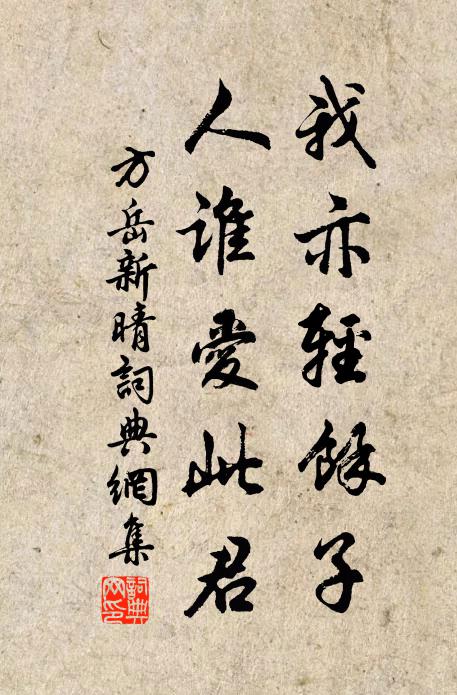 我亦輕餘子
人誰愛此君
方岳新晴詞典網集
詞典網印